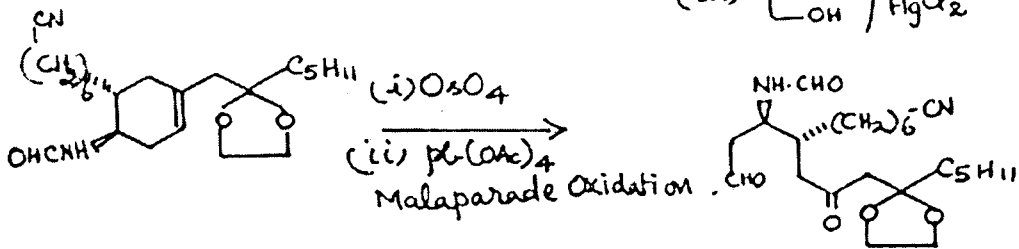 OH / HgCl2
CN
(CH2)6
C5H11
OHCNH
O O
(i) OsO4
(ii) pb(OAc)4
Malaparade Oxidation.
NH·CHO
(CH2)6-CN
CHO
O
C5H11
O O